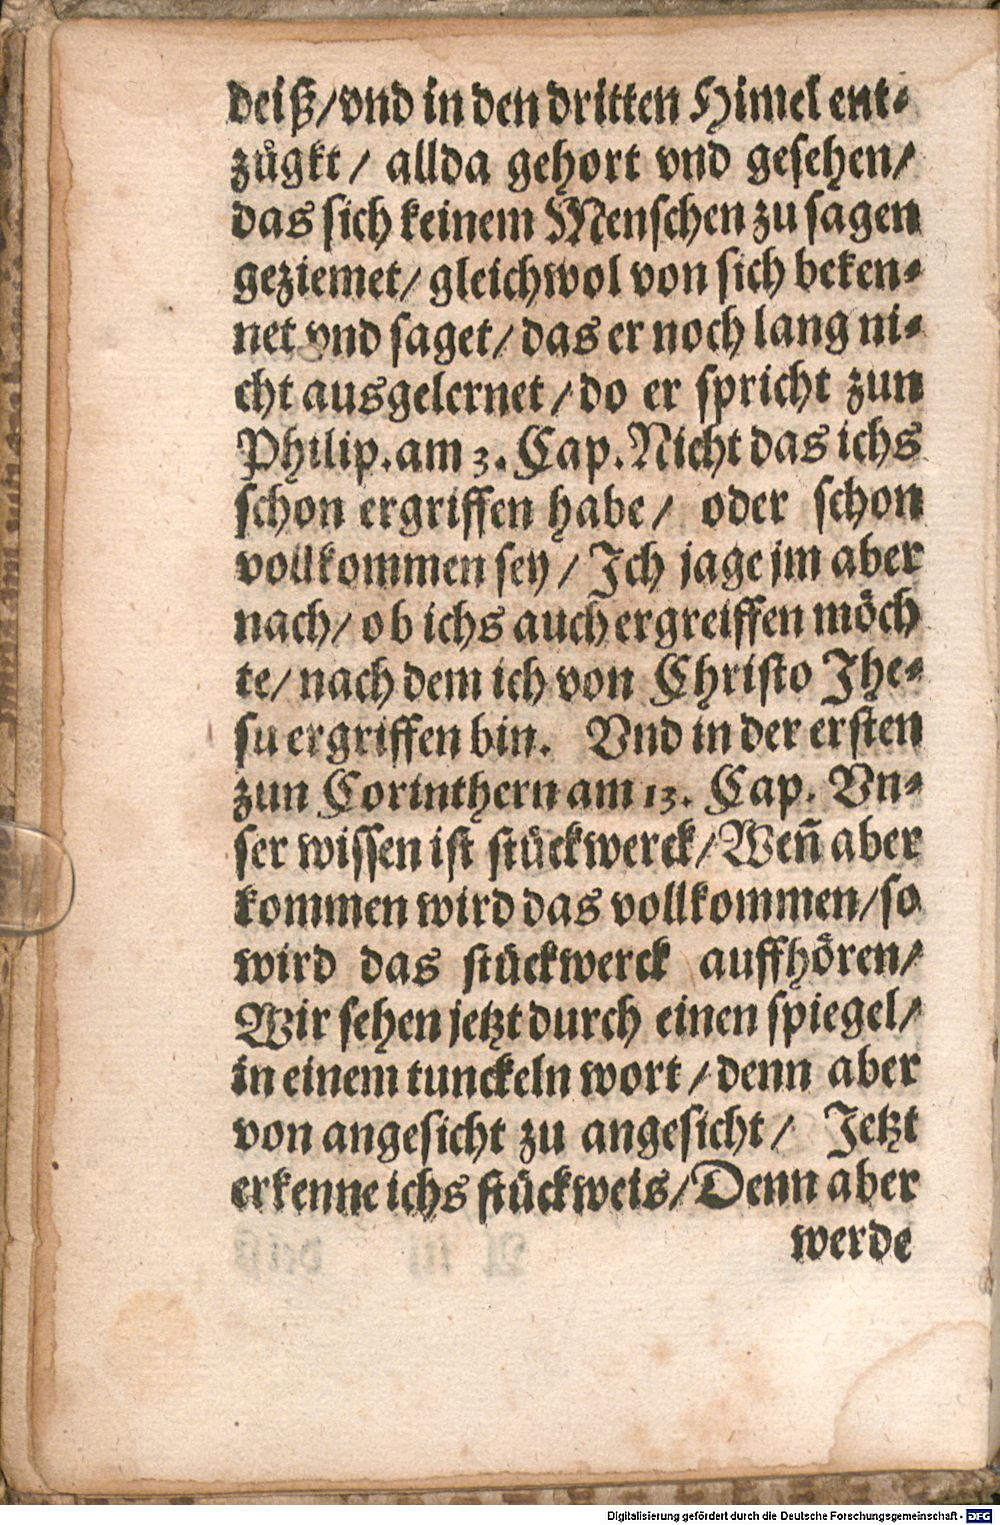 deiß/vnd in den dritten Himel ent-
zuͤgkt/ allda gehort vnd gesehen/
das sich keinem Menschen zu sagen
geziemet/ gleichwol von sich beken-
net vnd saget/ das er noch lang ni-
cht ausgelernet/ do er spricht zun
Philip. am 3. Cap. Nicht das ichs
schon ergriffen habe/ oder schon
vollkommen sey/ Ich jage jm aber
nach/ ob ichs auch ergreiffen moͤch
te/ nach dem ich von Christo Jhe-
su ergriffen bin. Vnd in der ersten
zun Corinthern am 13. Cap. Vn-
ser wissen ist stuͤckwerck/ Wen̄ aber
kommen wird das vollkommen/ so
wird das stuͤckwerck auffhoͤren/
Wir sehen jetzt durch einen spiegel/
in einem tunckeln wort/ denn aber
von angesicht zu angesicht/ Jetzt
erkenne ichs stuͤckweis/ Denn aber
werde
Digitalisierung gefördert durch die Deutsche Forschungsgemeinschaft - DFG